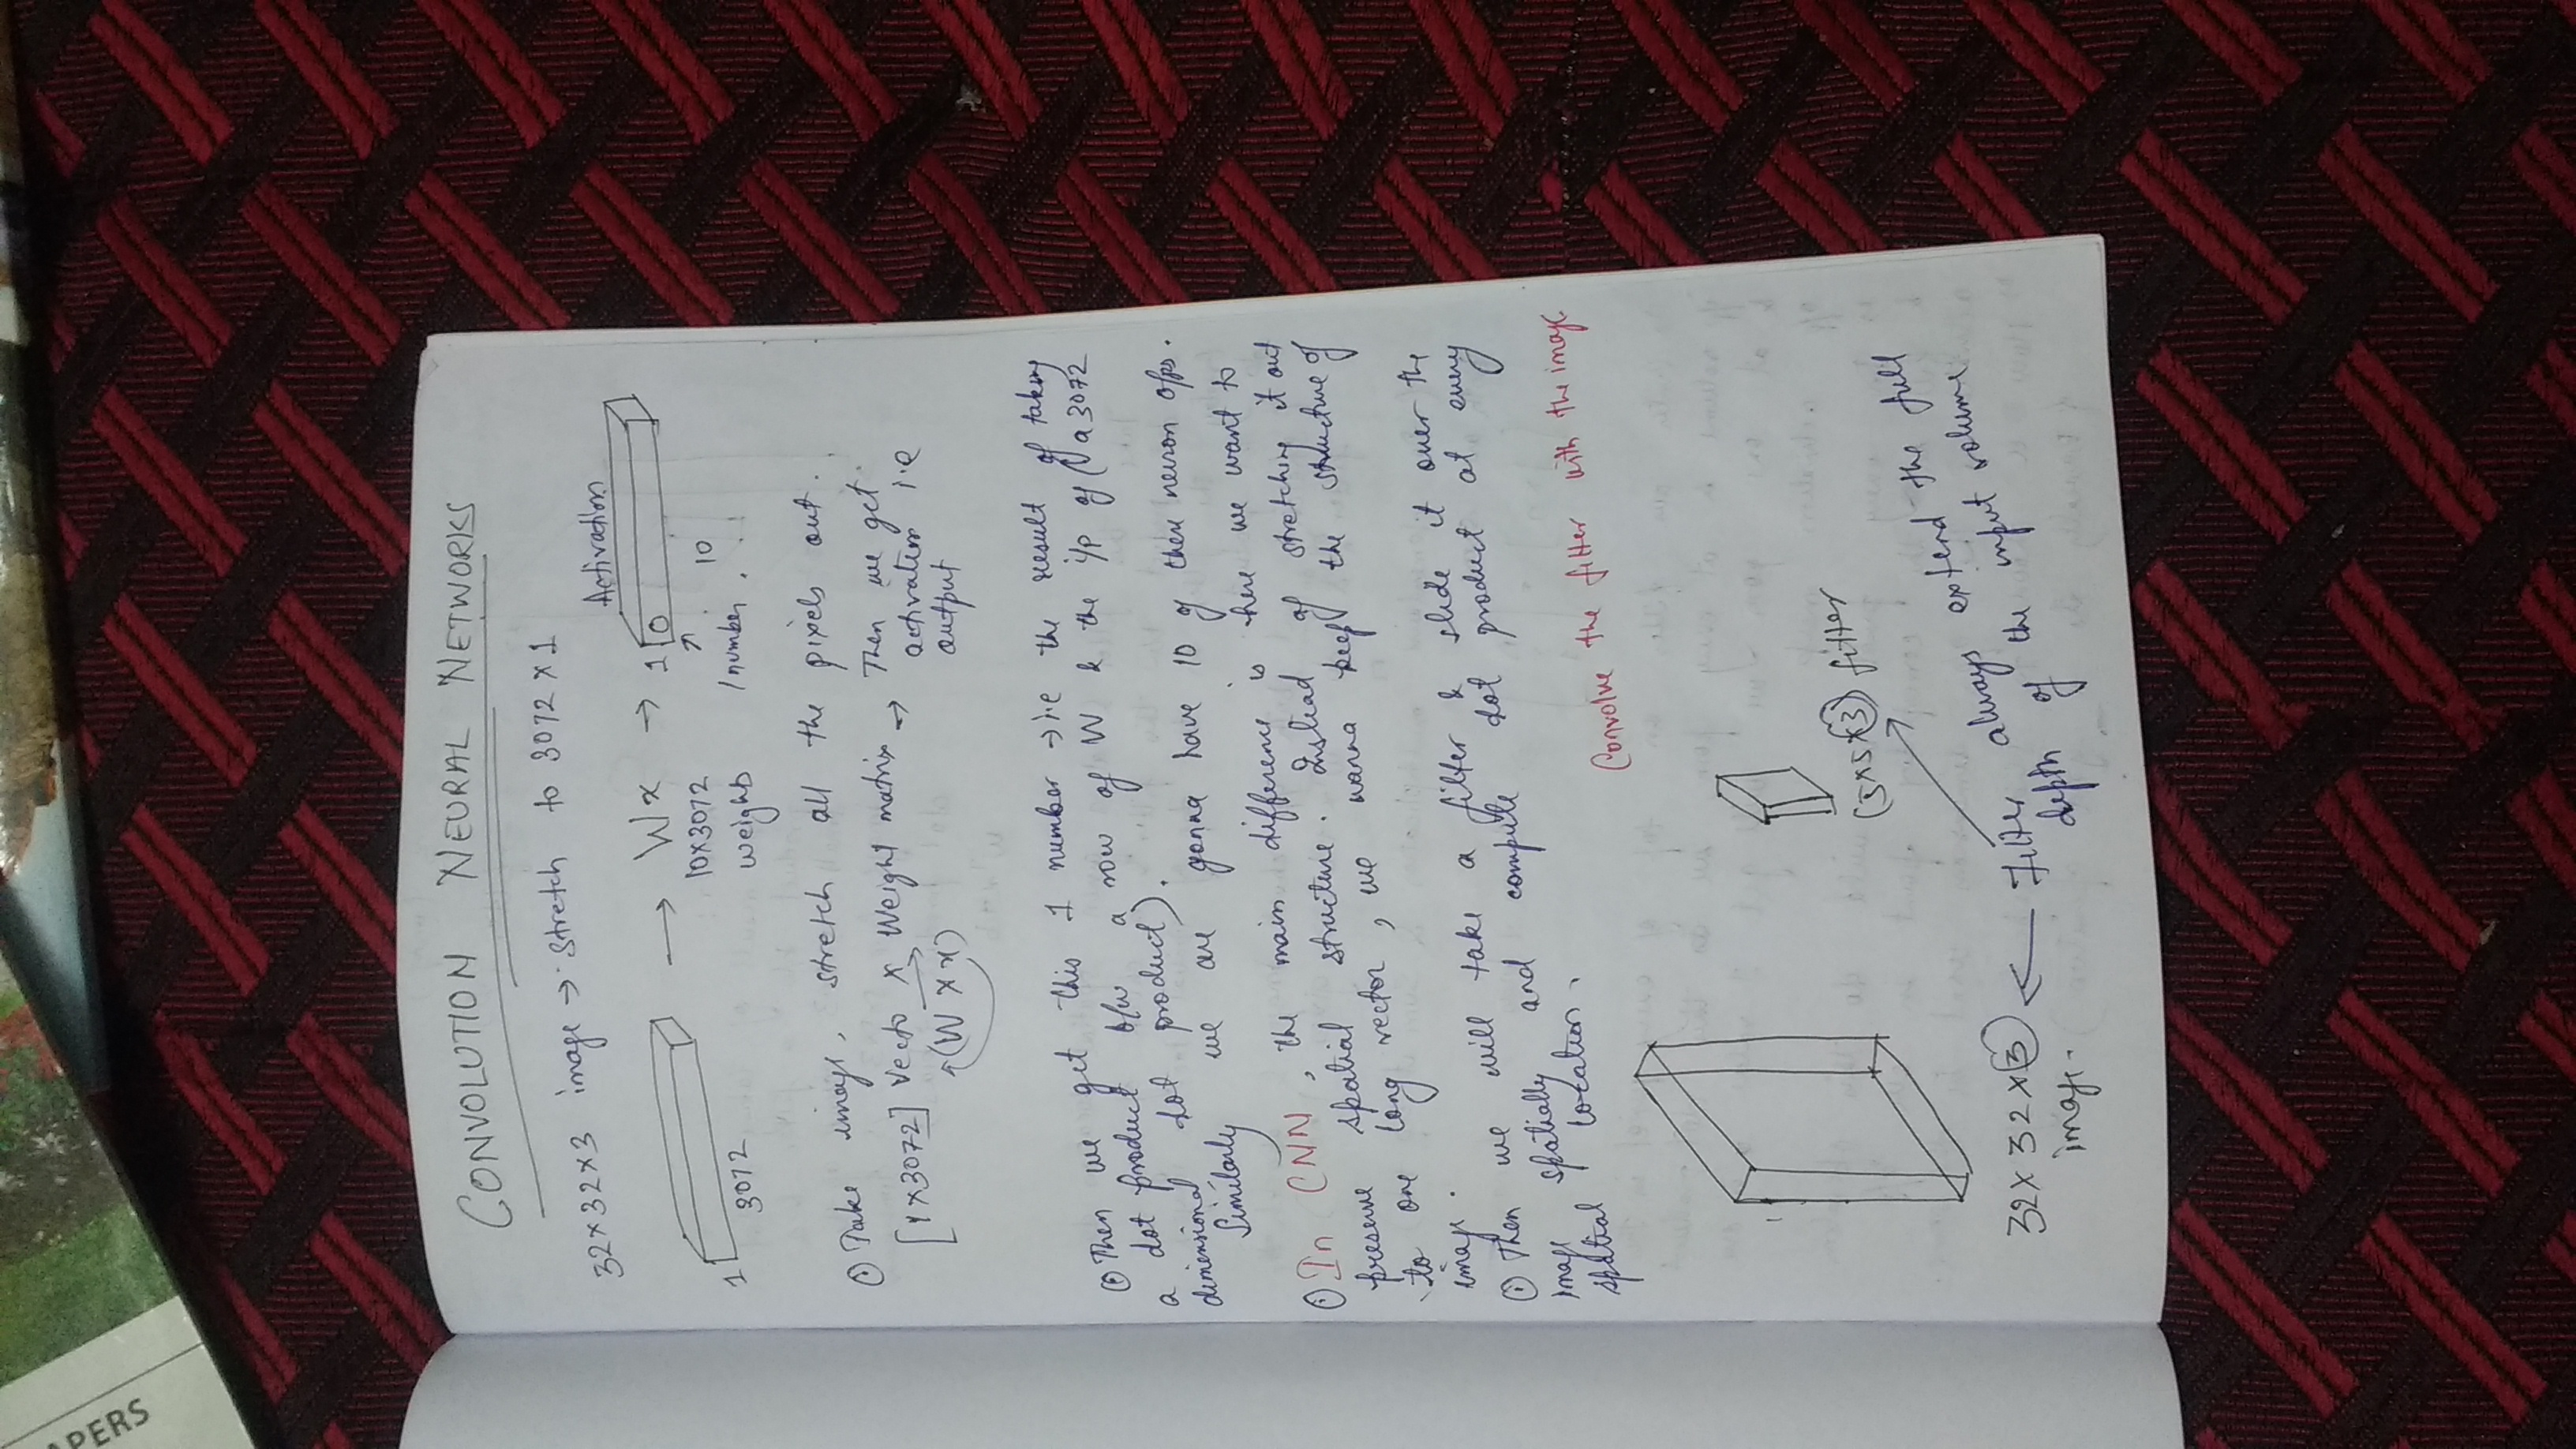 CONVOLUTION NEURAL NETWORKS
32x32x3 image → stretch to 3072 x 1
Activation
1 3072 → Wx → 1 0 10
10x3072 1 number.
weights
Take image, stretch all the pixels out.
[1 x 3072] Vecto x Weight matrix → Then we get
(W x x) activation i.e
output
Then we get this 1 number → ie the result of taking
a dot product b/w a row of W & the i/p of (a 3072
dimensional dot product).
Similarly we are gonna have 10 of these neuron o/ps.
In CNN, the main difference is here we want to
preserve spatial structure. Instead of stretching it out
to one long vector, we wanna keep the structure of
image.
Then we will take a filter & slide it over the
image spatially and compute dot product at every
spatial location.
Convolve the filter with the image.
(5x5x3) filter
32x32x3 ← Filter always extend the full
image. depth of the input volume
APERS